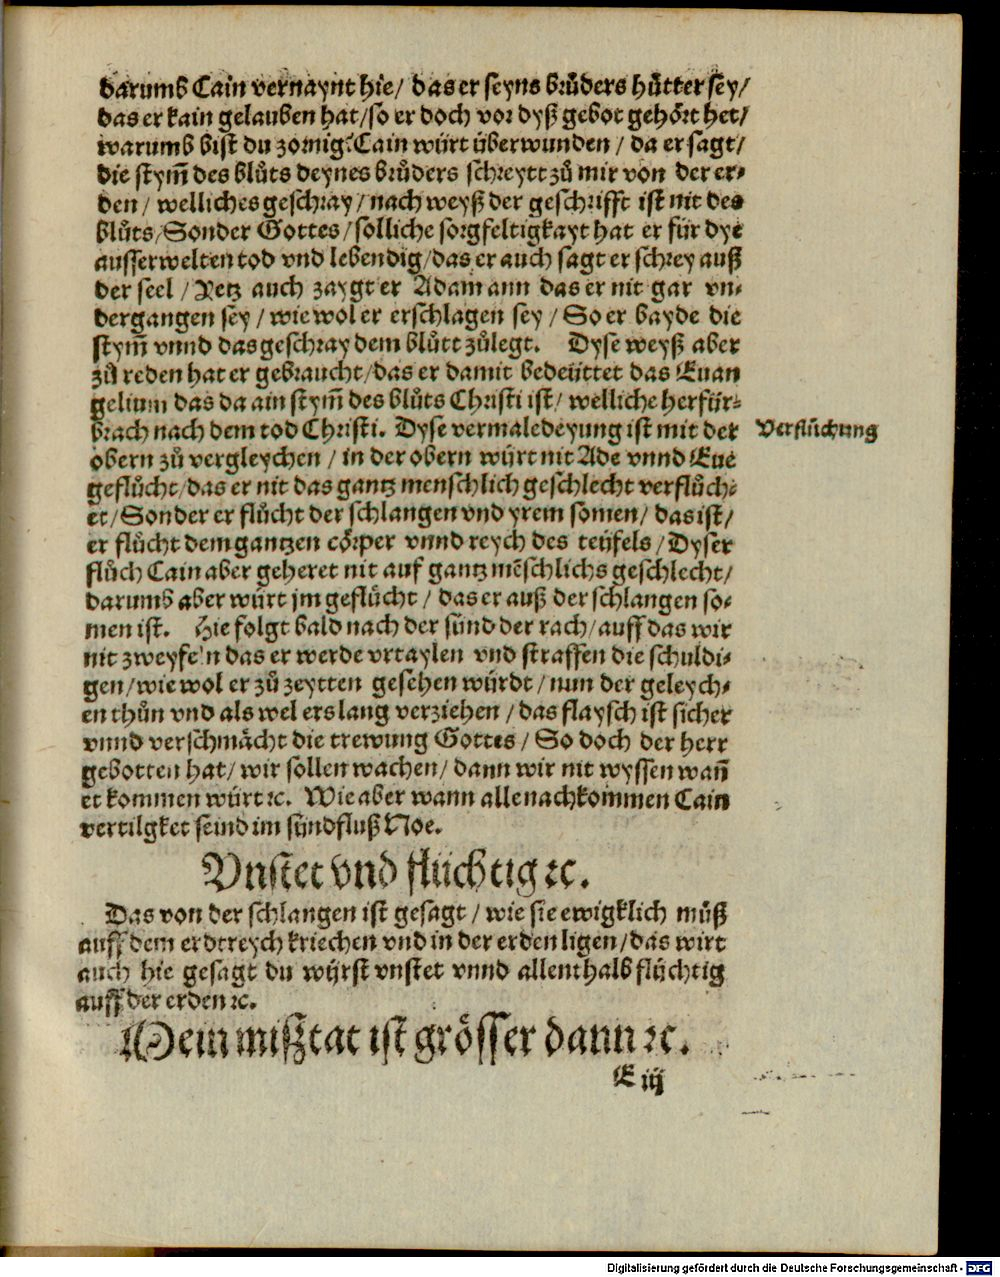 darumb Cain vernaynt hie/ das er seyns brůders hůtter sey/
das er kain gelauben hat/so er doch vor dyß gebot gehört het/
warumb bist du zornig? Cain würt überwunden / da er sagt/
die stym̃ des blůts deynes brůders schreytt zů mir von der er⸗
den / welliches geschray / nach weyß der geschrifft ist nit des
blůts/Sonder Gottes / solliche sorgfeltigkayt hat er für dye
ausserwelten tod vnd lebendig/das er auch sagt er schrey auß
der seel / Yetz auch zaygt er Adam ann das er nit gar vn⸗
dergangen sey / wie wol er erschlagen sey / So er bayde die
stym̃ vnnd das geschray dem blůtt zůlegt. Dyse weyß aber
zů reden hat er gebraucht/das er damit bedeüttet das Euan
gelium das da ain stym̃ des blůts Christi ist/ welliche herfür⸗
brach nach dem tod Christi. Dyse vermaledeyung ist mit der
Verflůchung
obern zů vergleychen / in der obern würt nit Ade vnnd Eue
geflůcht/das er nit das gantz menschlich geschlecht verflůch⸗
et/Sonder er flůcht der schlangen vnd yrem somen/ das ist/
er flůcht dem gantzen cörper vnnd reych des teüfels / Dyser
flůch Cain aber geheret nit auf gantz mẽschlichs geschlecht/
darumb aber würt jm geflůcht / das er auß der schlangen so⸗
men ist. Hie folgt bald nach der sünd der rach/auff das wir
nit zweyfeln das er werde vrtaylen vnd straffen die schuldi⸗
gen/wie wol er zů zeytten gesehen würdt / nun der geleych⸗
en thůn vnd als wel ers lang verziehen / das flaysch ist sicher
vnnd verschmächt die trewung Gottes / So doch der herr
gebotten hat/ wir sollen wachen/ dann wir nit wyssen wañ
er kommen würt ⁊c. Wie aber wann alle nachkommen Cain
vertilgket seind im sündfluß Noe.
Vnstet vnd flüchtig ⁊c.
Das von der schlangen ist gesagt / wie sie ewigklich můß
auff dem erdtreych kriechen vnd in der erden ligen/das wirt
auch hie gesagt du würst vnstet vnnd allenthalb flüchtig
auff der erden ⁊c.
Mein mißtat ist grösser dann ⁊c.
E iij
Digitalisierung gefördert durch die Deutsche Forschungsgemeinschaft - DFG